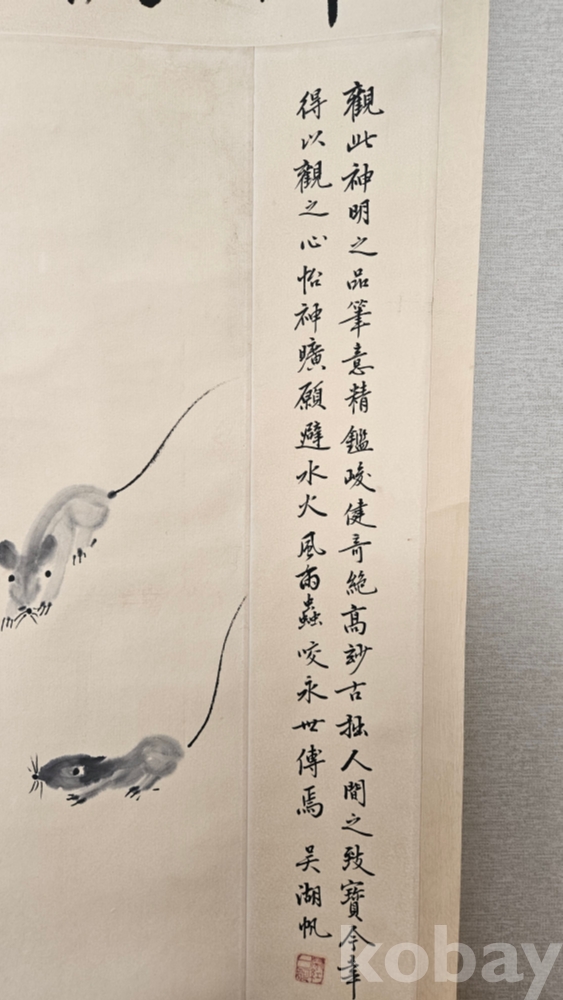 觀此神明之品筆意精鑑峻健奇絶高玅古拙人間之致寶今幸
得以觀之心怡神曠願避水火風雨蟲咬永世傅焉 吴湖帆
kobay